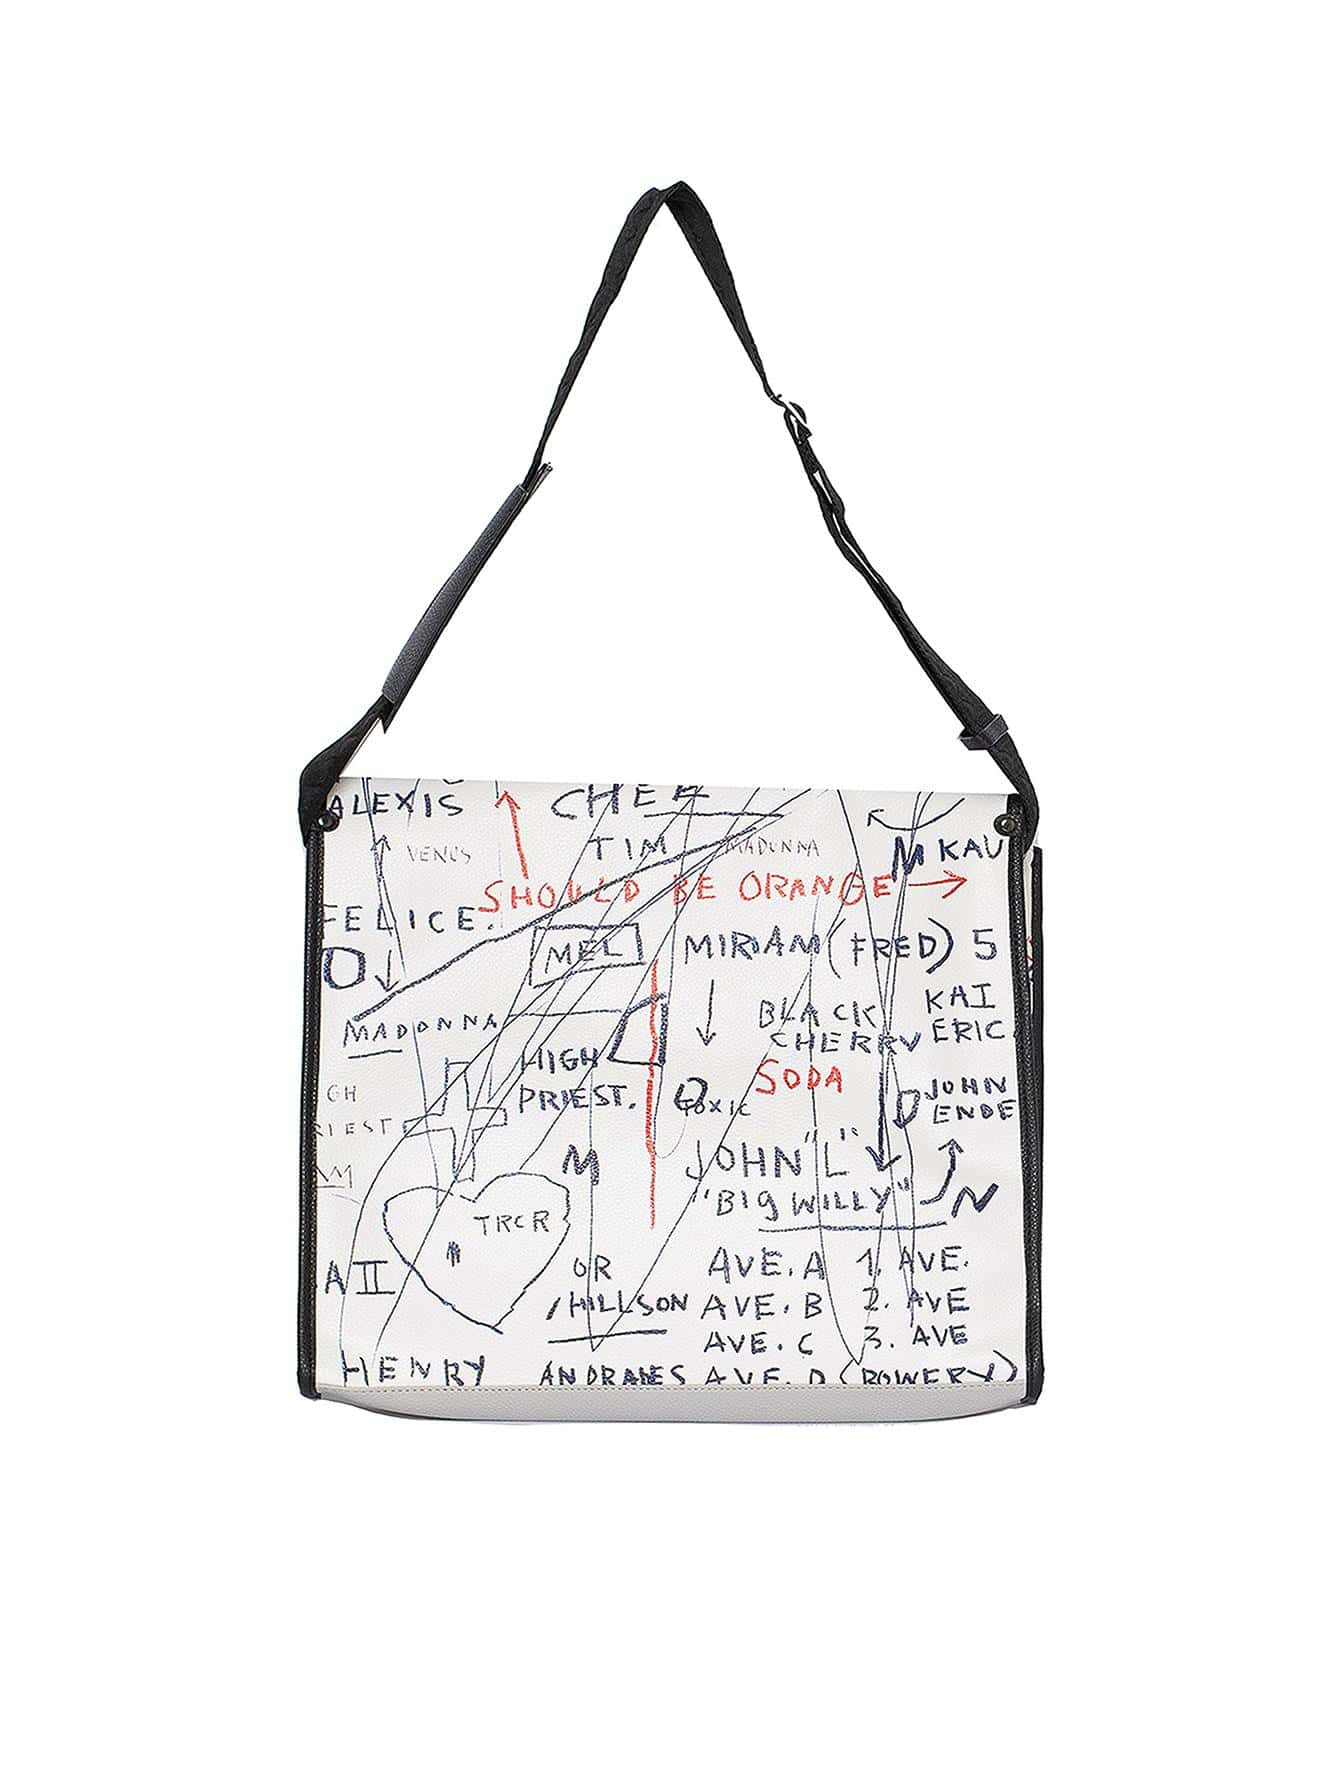 ALEXIS
CHEE
VENUS
TIM
MADONNA
M KAU
SHOULD BE ORANGE
FELICE.
MEL
MIRIAM (FRED) 5
O
BLACK
CHERRY
KAI
ERIC
MADONNA
HIGH
PRIEST.
SODA
TOXIC
JOHN
ENDE
GH
RIEST
M
JOHN "L"
"BIG WILLY"
N
TRCR
AII
OR
/HILLSON
AVE. A
AVE. B
AVE. C
AVE. D
1. AVE.
2. AVE
3. AVE
(BOWERY)
HENRY